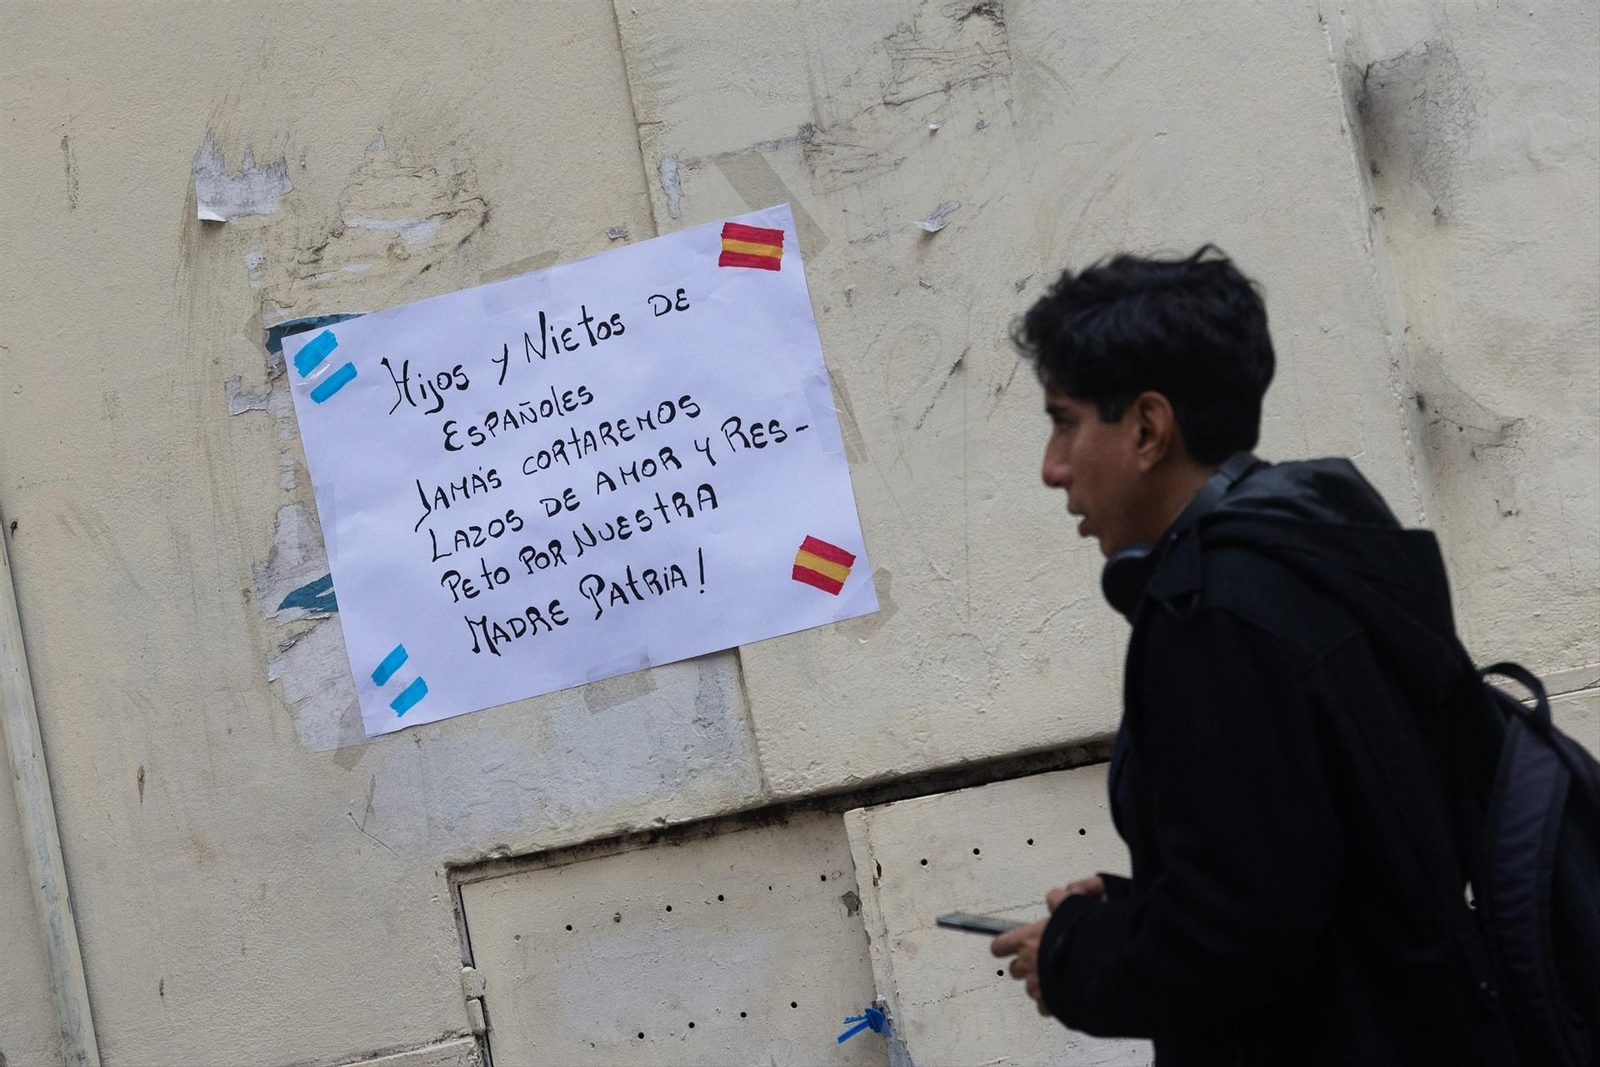 Hijos y Nietos de
Españoles
Jamás cortaremos
Lazos de amor y Res-
peto por nuestra
Madre Patria!